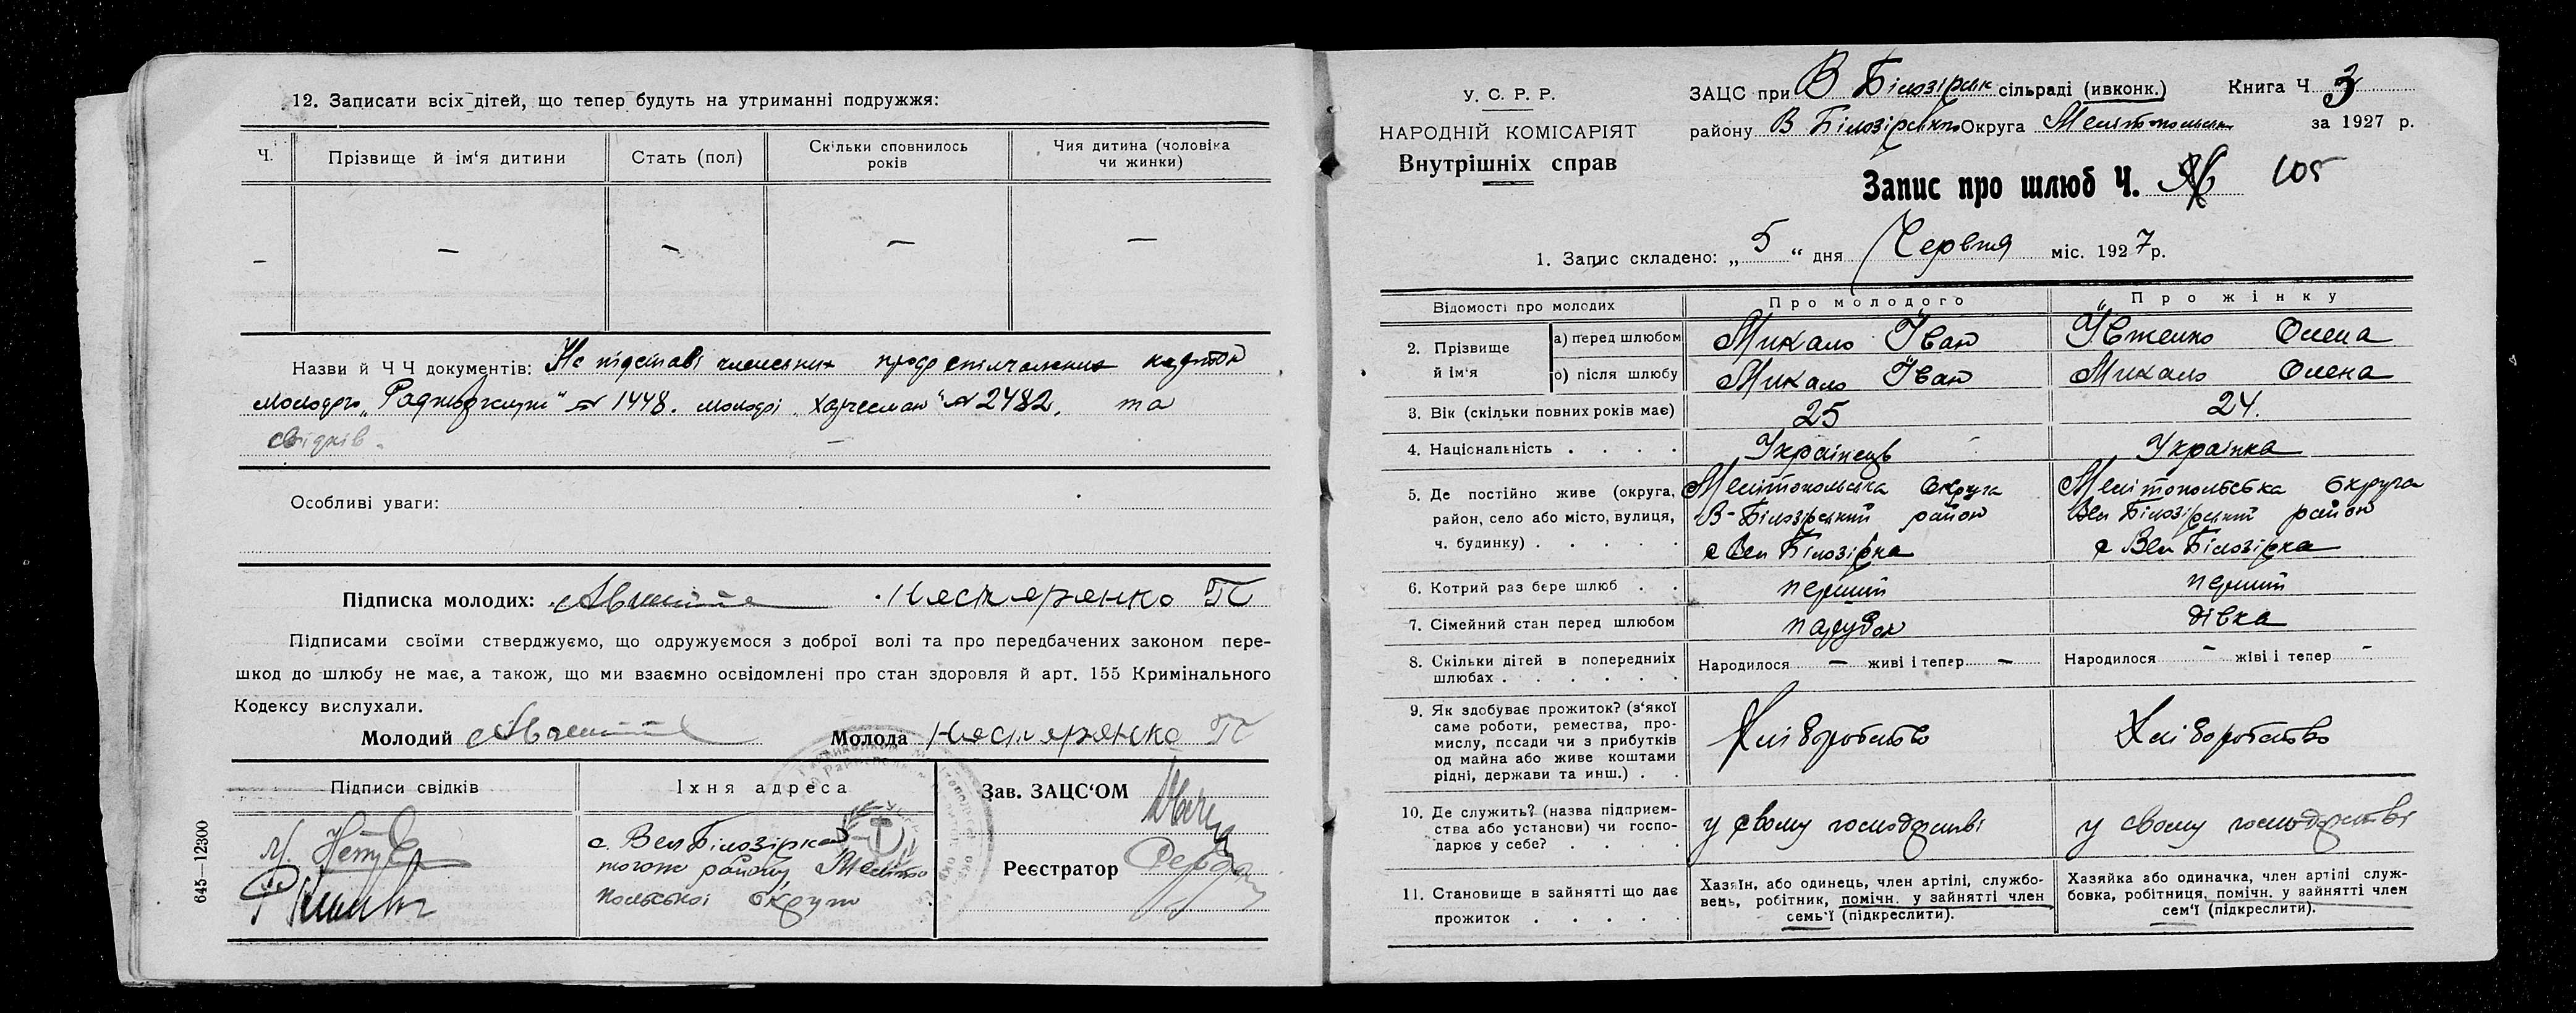 12. Записати всіх дітей, що тепер будуть на утриманні подружжя:
Ч.
Прізвище й ім‘я дитини
Стать (пол)
Скільки сповнилось років
Чия дитина (чоловіка чи жинки)
— — — — —
Назви й Ч Ч документів: На підставі
молодого „ " № 1448. молодрі " № 2482, та
свідків.
Особливі уваги:
Підписка молодих: Нестяренко П
Підписами своїми стверджуємо, що одружуємося з доброї волі та про передбачених законом пере-
шкод до шлюбу не має, а також, що ми взаємно освідомлені про стан здоровля й арт. 155 Кримінального
Кодексу вислухали.
Молодий Молода Нестяренко П
Підписи свідків
Їхня адреса
с. Вел Білозірка
тогож району Меліто
польської округи
Зав. ЗАЦС‘ОМ
Реєстратор
645—12300
У. С. Р. Р.
НАРОДНІЙ КОМІСАРІЯТ
Внутрішніх справ
ЗАЦС при В Білозірск сільраді (ивконк.) Книга Ч 3
району В Білозірського Округа Мелітопольськ за 1927 р.
Запис про шлюб Ч. 105
1. Запис складено: „ 5 “ дня Червня міс. 1927 р.
Відомості про молодих
Про молодого
Про жінку
2. Прізвище й ім‘я
а) перед шлюбом Микало Іван Овтенко Олена
о) після шлюбу Микало Іван Микало Олена
3. Вік (скільки повних років має) 25 24.
4. Національність . . . . Українець Українка
5. Де постійно живе (округа, Мелітопольська округа Мелітопольська округа
район, село або місто, вулиця, В-Білозірський район Вел Білозірський район
ч. будинку) . . . . . с Вел Білозірка с Вел Білозірка
6. Котрий раз бере шлюб . . перший перший
7. Сімейний стан перед шлюбом парубок дівка
8. Скільки дітей в попередниіх шлюбах . . . . . .
Народилося — живі і тепер —
Народилося - жіві і тепер -
9. Як здобуває прожиток? (з‘якої
саме роботи, ремества, про-
мислу, посади чи з прибутків
од майна або живе коштами
рідні, держави та инш.) . .
Хліборобство
Хліборобство
10. Де служить? (назва підприєм-
ства або установи) чи госпо-
дарює у себе? . . . .
у свому господарстві
у свому господарстві
11. Становище в зайнятті що дає
прожиток . . . . .
Хазяїн, або одинець, член артілі, службо-
вець, робітник, помічн. у зайнятті член
семь‘ї (підкреслити).
Хазяйка або одиначка, член артілі служ-
бовка, робітниця, помічн. у зайнятті член
сем‘ї (підкреслити).